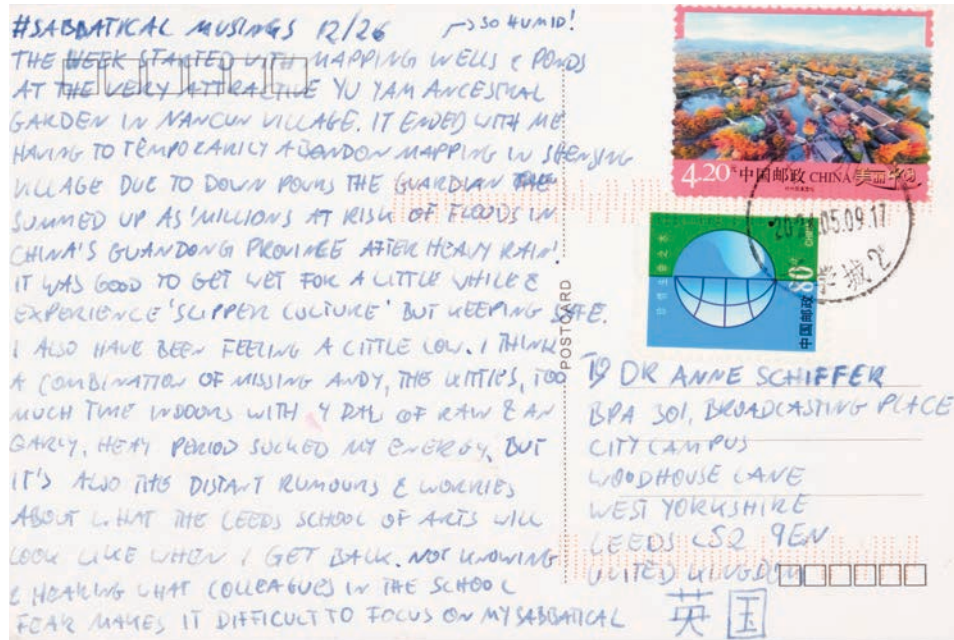 #SABBATICAL MUSINGS 12/26 → SO HUMID!
THE WEEK STARTED WITH MAPPING WELLS & PONDS
AT THE VERY ATTRACTIVE YU YAM ANCESTRAL
GARDEN IN NANCUN VILLAGE. IT ENDED WITH ME
HAVING TO TEMPORARILY ABANDON MAPPING IN SHENJING
VILLAGE DUE TO DOWN POURS THE GUARDIAN
SUMMED UP AS 'MILLIONS AT RISK OF FLOODS IN
CHINA'S GUANDONG PROVINCE AFTER HEAVY RAIN'.
IT WAS GOOD TO GET WET FOR A LITTLE WHILE &
EXPERIENCE 'SLIPPER CULTURE' BUT KEEPING SAFE.
I ALSO HAVE BEEN FEELING A LITTLE LOW. I THINK
A COMBINATION OF MISSING ANDY, THE KITTIES, TOO
MUCH TIME INDOORS WITH 4 DAY OF RAIN & AN
EARLY, HEAVY PERIOD SUCKED MY ENERGY. BUT
IT'S ALSO THE DISTANT RUMOURS & WORRIES
ABOUT WHAT THE LEEDS SCHOOL OF ARTS WILL
LOOK LIKE WHEN I GET BACK. NOT KNOWING
& HEARING WHAT COLLEAGUES IN THE SCHOOL
FEAR MAKES IT DIFFICULT TO FOCUS ON MY SABBATICAL
POSTCARD
4.20元 中国邮政 CHINA 美丽中国
05.09.17
学城
80分
中国邮政
CHINA
TO DR ANNE SCHIFFER
BPA 301, BROADCASTING PLACE
CITY CAMPUS
WOODHOUSE LANE
WEST YORKSHIRE
LEEDS LS2 9EN
UNITED KINGDOM
英国